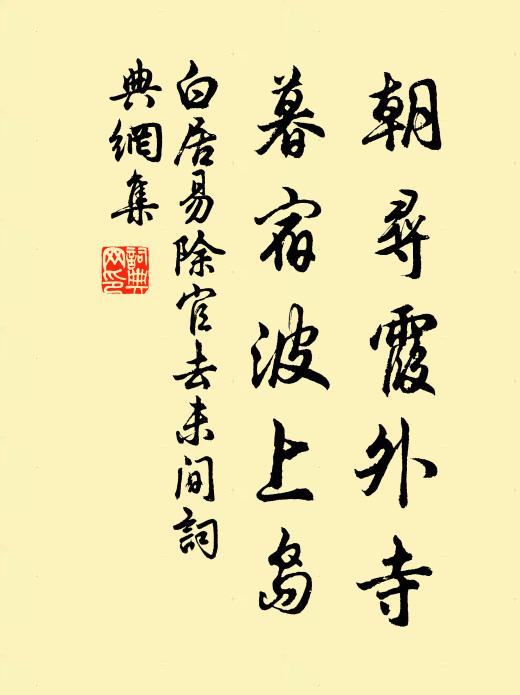 朝尋霞外寺
暮宿波上島
白居易除官去未間詞
典網集
詞典
网印